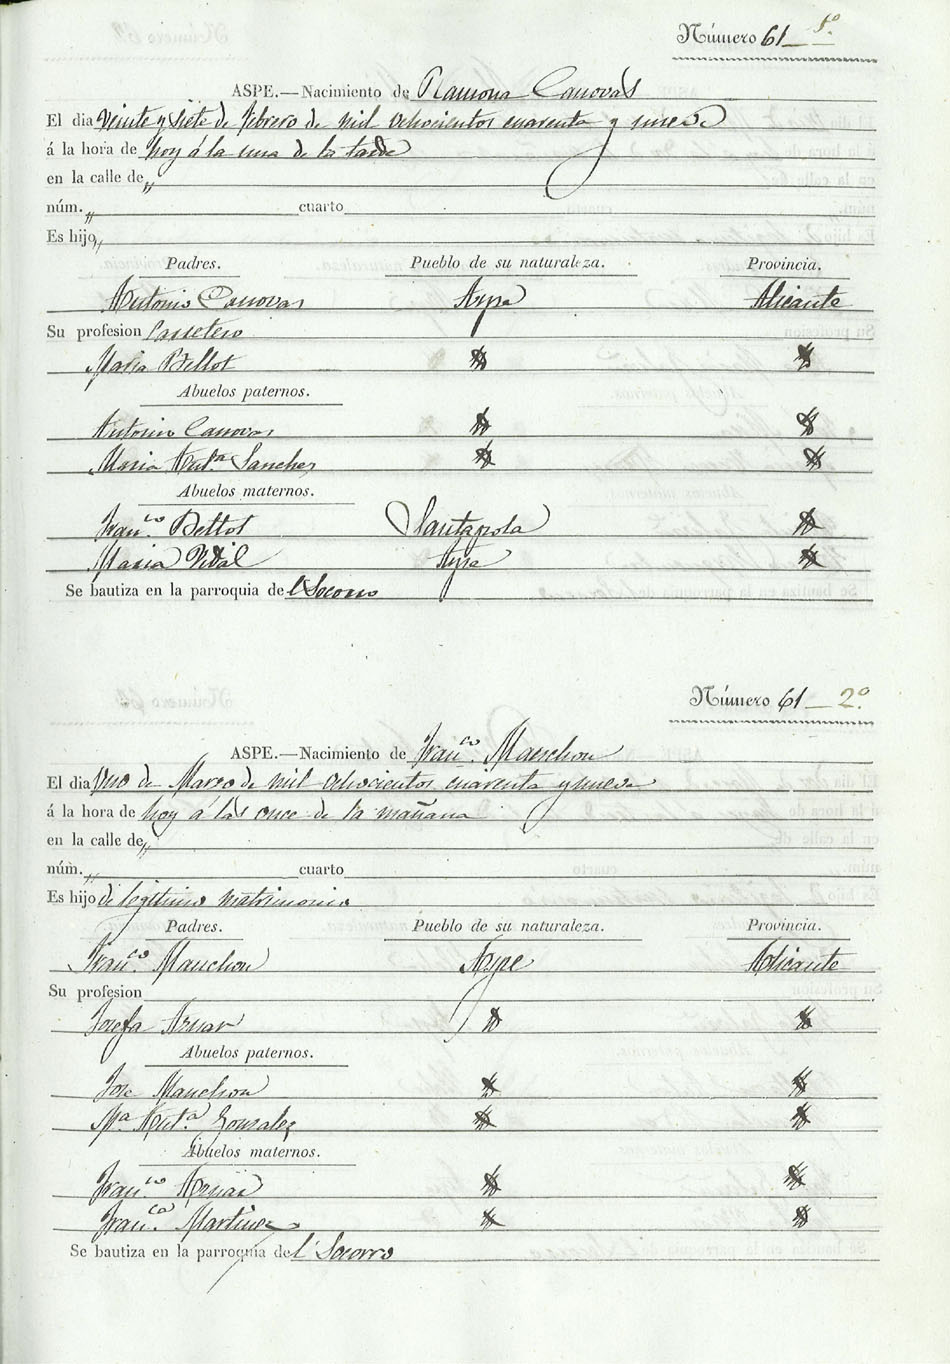 Número 61 1º
ASPE.—Nacimiento de Ramona Canovas
El dia veinte y siete de febrero de mil ochocientos cuarenta y nueve
á la hora de hoy á la una de la tarde
en la calle de „
núm. „ cuarto
Es hijo „
Padres. Pueblo de su naturaleza. Provincia.
Antonio Canovas Aspe Alicante
Su profesion Carretero
Maria Bellot
Abuelos paternos.
Antonio Canovas
Maria Antª Sanches
Abuelos maternos.
Franco Bellot Santapola
Maria Vidal Aspe
Se bautiza en la parroquia de l Socorro
Número 61 2º
ASPE.—Nacimiento de Franco Manchon
El dia Uno de Marzo de mil ochocientos cuarenta y nueve
á la hora de hoy á las once de la mañana
en la calle de „
núm. „ cuarto
Es hijo de legitimo matrimonio
Padres. Pueblo de su naturaleza. Provincia.
Franco Manchon Aspe Alicante
Su profesion
Josefa Aznar
Abuelos paternos.
Jose Manchon
Mª Antª Gonzalez
Abuelos maternos.
Franco Aznar
Franca Martinez
Se bautiza en la parroquia de l Socorro